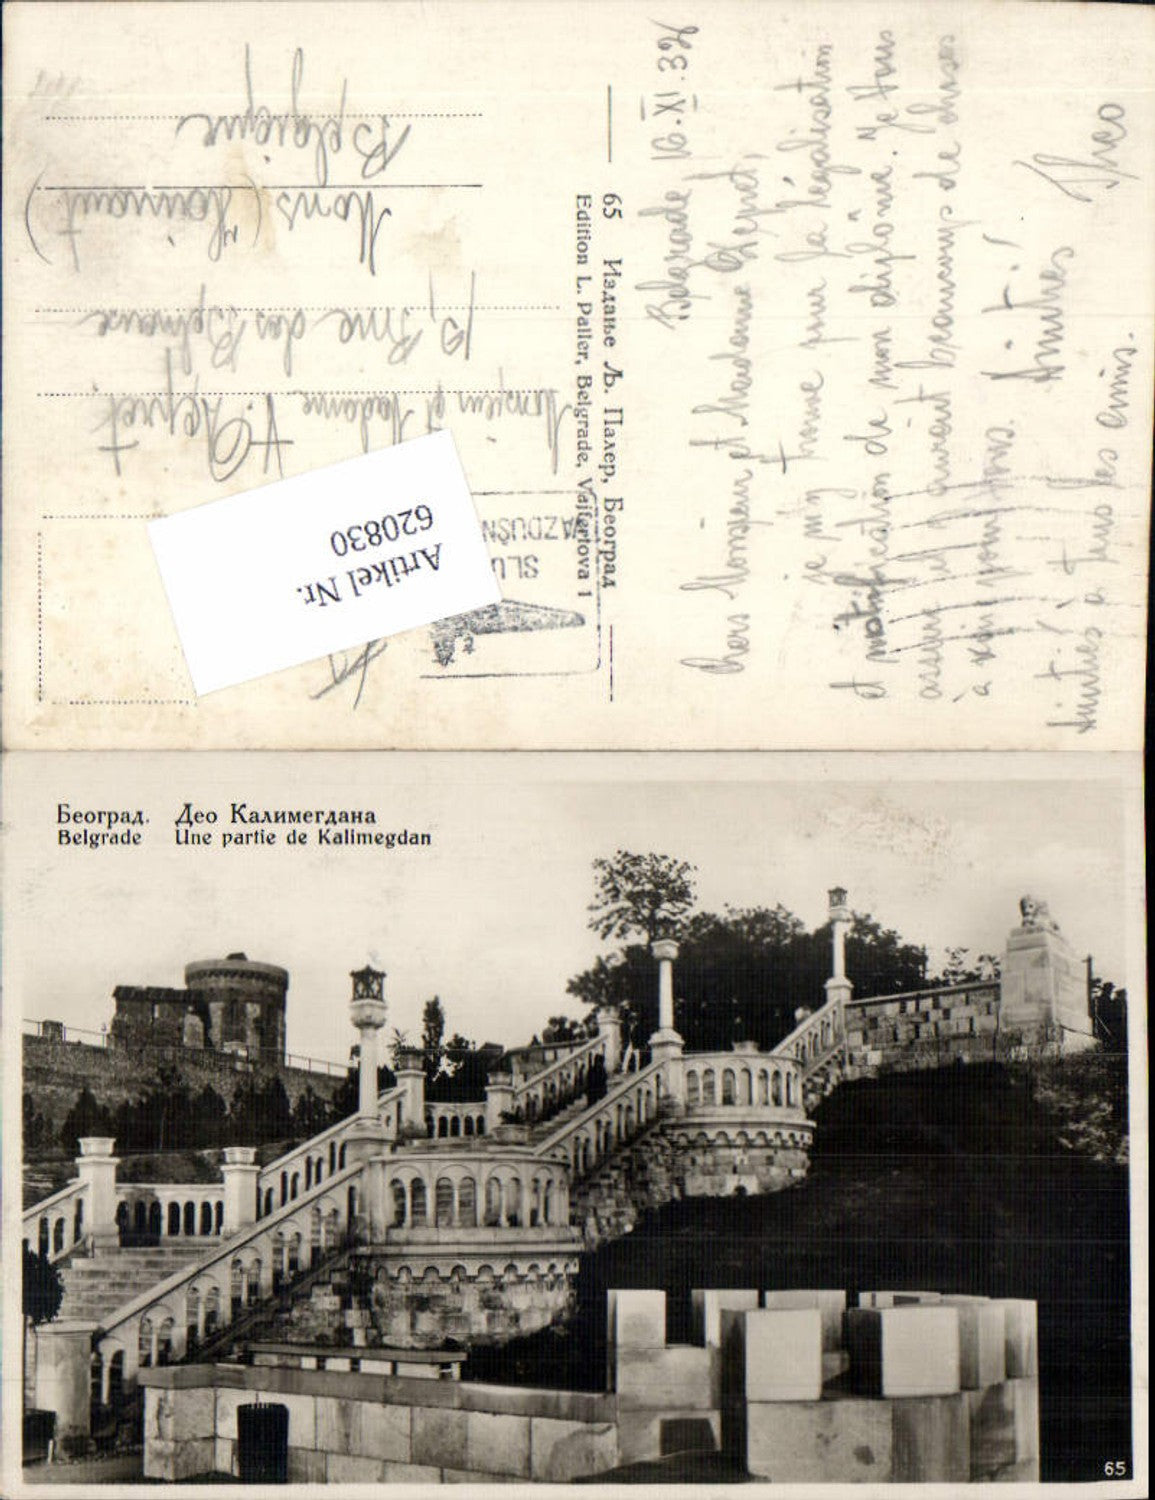 Belgrade, 16.XI.32
Chers Monsieur et Madame Hepnet,
je m'y trouve pour la légalisation
et notification de mon diplôme. Je vous
assure il y aurait beaucoup de choses
à voir pour vous.
Amitiés
Amitiés à tous les amis.
65 Издање Љ. Палер, Београд
Edition L. Paller, Belgrade, Vajfertova 1
Monsieur et Madame
Mons (Hainaut)
Belgique
SLU
VAZDUŠN
Artikel Nr.
620830
Београд. Део Калимегдана
Belgrade Une partie de Kalimegdan
65